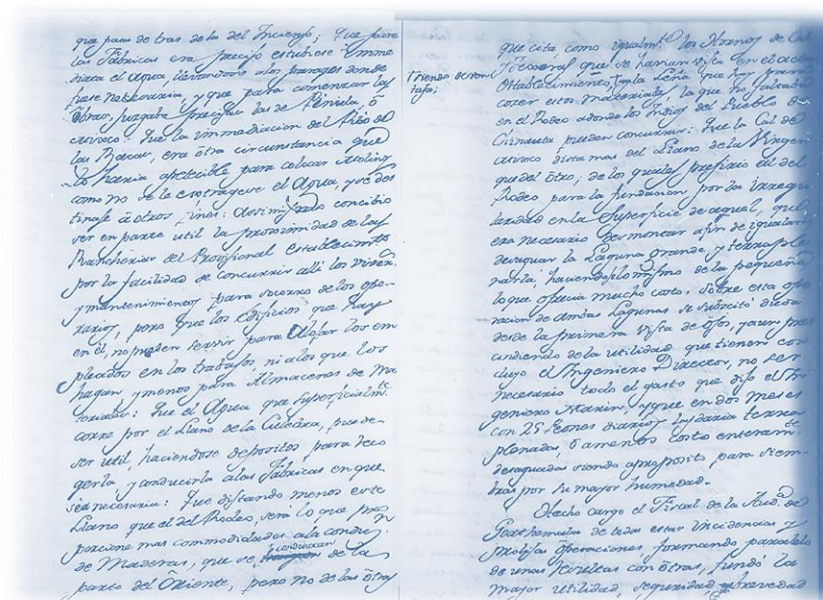 que pasa de tras de la del Incienso; Que para
las Fabricas era preciso estubiese imme
diata el Agua, llevandola alos parages donde
fuese necesaria, y que para comenzar las
Obras, juzgaba precisas las de Peñula, ô
arivaco: Que la immediacion del Rio de
las Bacas, era ôtra circunstancia que
lo haria apetecible para colocar Molinos
como no se le extragese el Agua, y se des
tinase â otros fines: Assimismo concibio
ser en parte util la proximidad de las
Rancherias del Provisional establecimto
por la facilidad de concurrir alli los viveres
y mantenimientos para socorro de los ope-
rarios, pero que los edificios que hay
en êl, no pueden servir para Alojar los em
pleados en los trabajos ni alos que los
hagan, y menos para Almacenes de Ma
teriales: Que el Agua que superficialmte
corre por el Llano de la Culebra, puede
ser util, haciendose depositos para reco
gerla y conducirla alas Fabricas en que
sea necesaria: Que distando menos este
Llano que el del Rodeo, será lo que pro
porcione mas commodidades ala condn
de Maderas, que se conduzcan de la
parte del Ôriente, pero no de las ôtras
que cita como igualmte los Hornos de Cal
Yocoreal que se havian visto en el actual
Establecimiento, y la Leña que hay para
cozer estos materiales, la que no faltaba
en el Rodeo adonde los Indios del Pueblo de
Chinauta pueden concurrir: Que la Cal de
arivaco dista mas del Llano de la Virgen
que del ôtro; de los quales prefirio al del
Rodeo para la fundacion por la irregu
laridad en la superficie de aquel, que
era necesario desmontar a fin de igualarlo
desaguar la Laguna grande y terraple
narla, haciendo lo mismo de la pequeña
lo que ofrecia mucho costo: Sobre esta ope
racion de ambas Lagunas se suscitó duda
desde la primera vista de ojos, y aun pres
cindiendo de la utilidad que tienen con
cluyo el Ingeniero Director, no ser
necesario todo el gasto que dijo el In
geniero Marin, y que en dos meses
con 25 Peones diarios las daria terra
plenadas, ô a menos costo enteramte
desaguadas siendo aproposito para siem
bras por su mayor humedad.
Hecho cargo el Fiscal de la Auda de
Goathemala de todas estas incidencias y
prolijas operaciones, formando paralelo
de unas resultas con ôtras, fundó la
mayor utilidad, seguridad, y brevedad